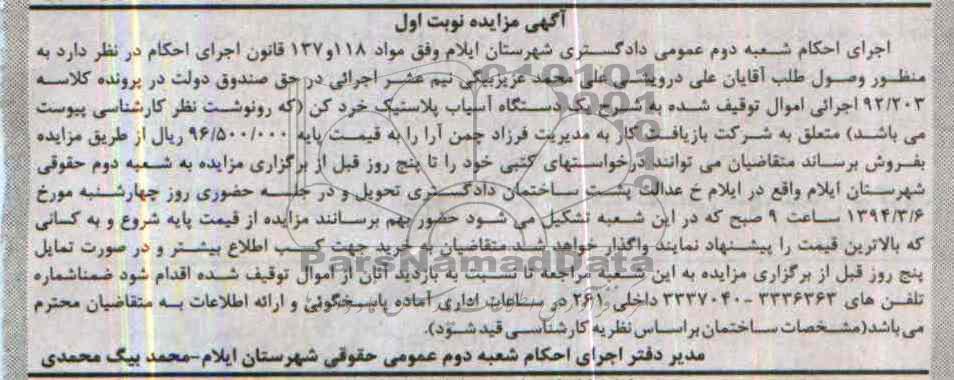 آگهی مزایده نوبت اول
اجرای احکام شعبه دوم عمومی دادگستری شهرستان ایلام وفق مواد ۱۱۸و۱۳۷ قانون اجرای احکام در نظر دارد به
منظور وصول طلب آقایان علی درویشی علی محمد عزیزبیگی نیم عشر اجرائی در حق صندوق دولت در پرونده کلاسه
۹۲/۲۰۳ اجرائی اموال توقیف شده به شرح یک دستگاه آسیاب پلاستیک خرد کن (که رونوشت نظر کارشناسی پیوست
می باشد) متعلق به شرکت بازیافت کار به مدیریت فرزاد چمن آرا را به قیمت پایه ۹۶/۵۰۰/۰۰۰ ریال از طریق مزایده
بفروش برساند متقاضیان می توانند درخواستهای کتبی خود را تا پنج روز قبل از برگزاری مزایده به شعبه دوم حقوقی
شهرستان ایلام واقع در ایلام خ عدالت پشت ساختمان دادگستری تحویل و در جلسه حضوری روز چهارشنبه مورخ
۱۳۹۴/۳/۶ ساعت ۹ صبح که در این شعبه تشکیل می شود حضور بهم برسانند مزایده از قیمت پایه شروع و به کسانی
که بالاترین قیمت را پیشنهاد نمایند واگذار خواهد شد متقاضیان به خرید جهت کسب اطلاع بیشتر و در صورت تمایل
پنج روز قبل از برگزاری مزایده به این شعبه مراجعه تا نسبت به بازدید آنان از اموال توقیف شده اقدام شود ضمناشماره
تلفن های ۳۳۳۶۳۶۳ -۳۳۳۷۰۴۰ داخلی ۲۶۱ در ساعات اداری آماده پاسخگوئی و ارائه اطلاعات به متقاضیان محترم
می باشد(مشخصات ساختمان براساس نظریه کارشناسی قید شود).
مدیر دفتر اجرای احکام شعبه دوم عمومی حقوقی شهرستان ایلام-محمد بیگ محمدی
ParsNamadData